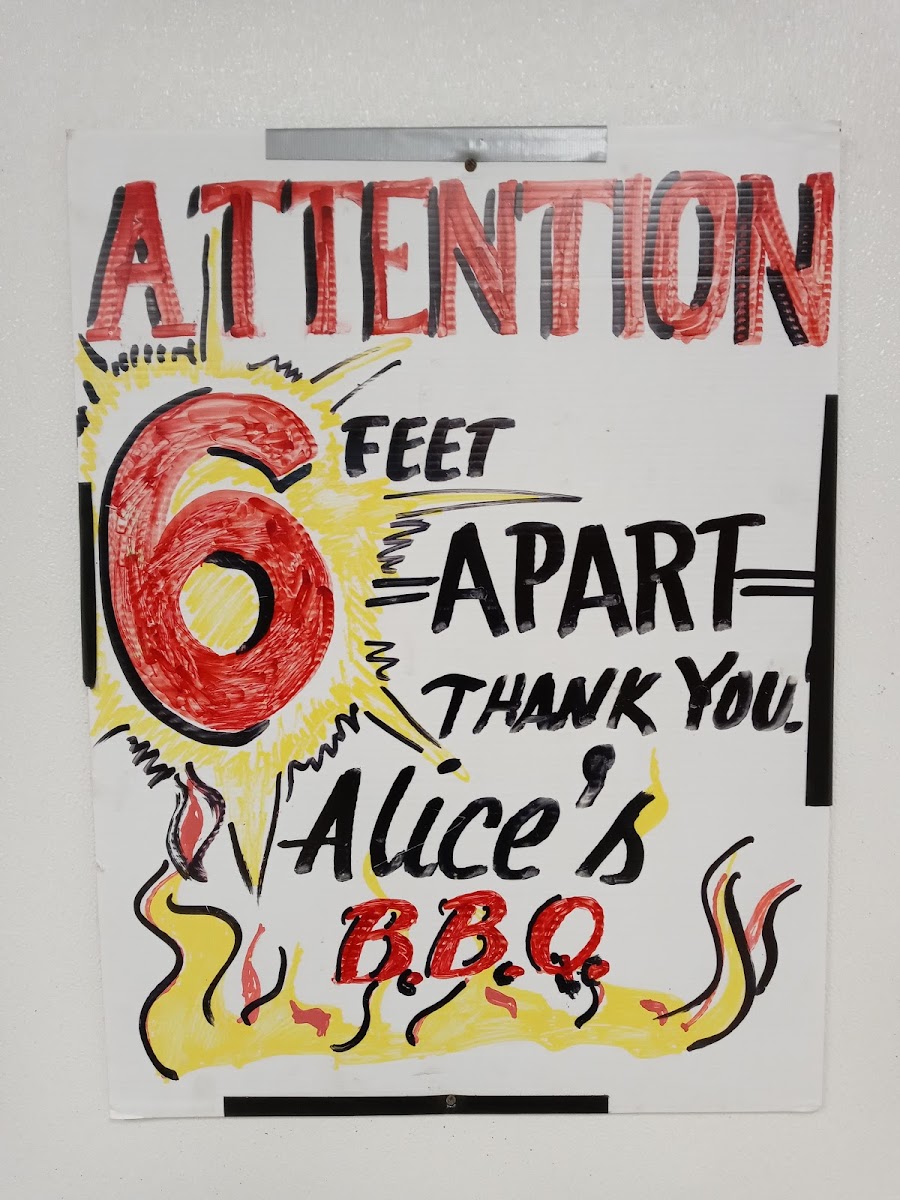 ATTENTION
6 FEET
=APART=
THANK YOU.
Alice's
B.B.Q.